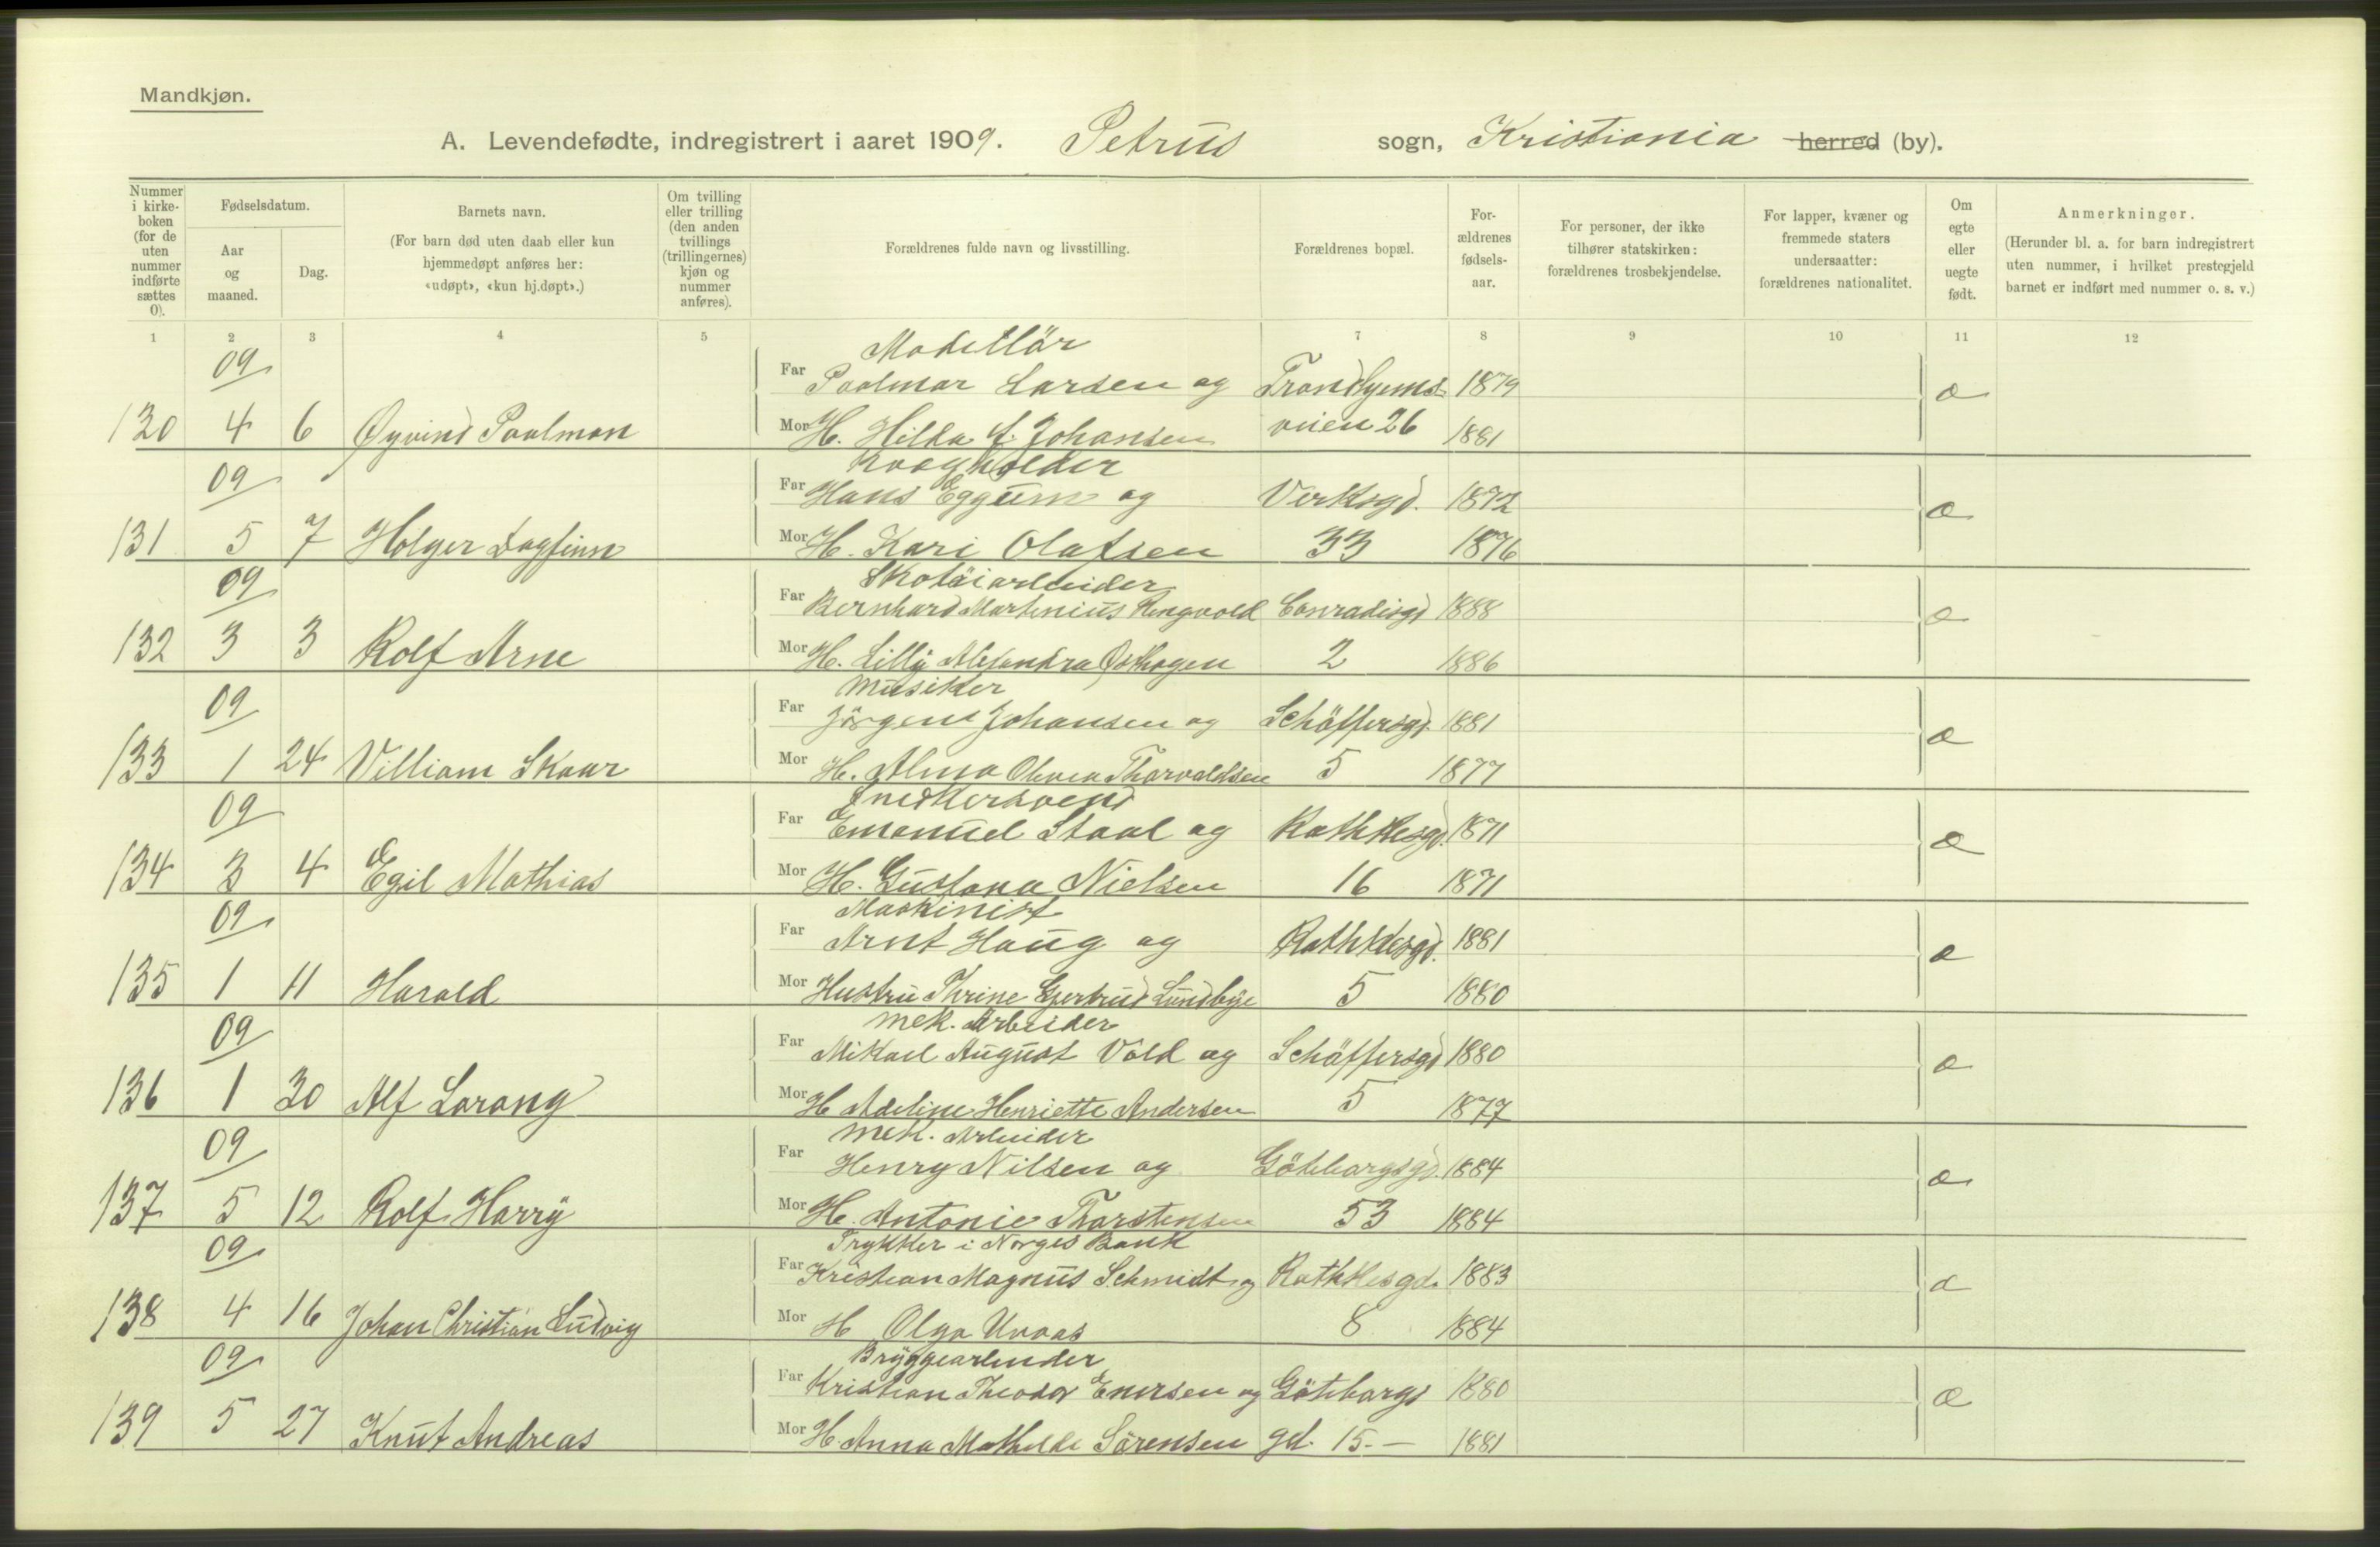 Mandkjøn.
A. Levendefødte, indregistrert i aaret 1909. Petrus sogn, Kristiania herred (by).
Nummer i kirke-boken (for de uten nummer indførte sættes 0).
Fødselsdatum.
Aar og maaned.
Dag.
Barnets navn.
(For barn død uten daab eller kun hjemmedøpt anføres her: «udøpt», «kun hj.døpt».)
Om tvilling eller trilling (den anden tvillings (trillingernes) kjøn og nummer anføres).
Forældrenes fulde navn og livsstilling.
Forældrenes bopæl.
For-ældrenes fødsels-aar.
For personer, der ikke tilhører statskirken: forældrenes trosbekjendelse.
For lapper, kvæner og fremmede staters undersaatter: forældrenes nationalitet.
Om egte eller uegte født.
Anmerkninger.
(Herunder bl. a. for barn indregistrert uten nummer, i hvilket prestegjeld barnet er indført med nummer o. s. v.)
1 2 3 4 5 7 8 9 10 11 12
09 Modellör
Far Paalmar Larsen og Trondhjems- 1879 æ
130 4 6 Øyvind Paalmar Mor H. Hilda f. Johansen veien 26 1881
09
Far Hans Eggum og Verksgd. 1872 æ
131 5 7 Holger Dagfinn Mor H. Kari Olafsen 33 1876
09 Skotöiarbeider
Far Bernhard Martinius Ringvold Conradisgd 1888 æ
132 3 3 Rolf Arne Mor H. Lilly Alexandra Østhagen 2 1886
09 Musiker
Far Jörgen Johansen og Schäffersgd. 1881 æ
133 1 24 Villiam Skaur Mor H. Alma Olivia Thorvaldsen 5 1877
09 Snedkersvend
Far Emanuel Staal og Rathkesgd. 1871 æ
134 3 4 Egil Mathias Mor H. Gustava Nielsen 16 1871
09 Maskinist
Far Arnt Haug og Rathkesgd. 1881 æ
135 1 11 Harald Mor Hustru Thrine Gjertrud Lundbye 5 1880
09 Mek. Arbeider
Far Mikael August Vold og Schäffersgd 1880 æ
136 1 30 Alf Lorang Mor H Adeline Henriette Andersen 5 1877
09 Mek. Arbeider
Far Henry Nilsen og Göteborgsgd. 1884 æ
137 5 12 Rolf Harry Mor H. Antonie Thorstensen 53 1884
09 Trykker i Norges Bank
Far Kristian Magnus Schmidt og Rathkesgd. 1883 æ
138 4 16 Johan Christian Ludvig Mor H Olga 8 1884
09 Bryggearbeider
Far Kristian Theodor Enersen og Göteborgs 1880 æ
139 5 27 Knut Andreas Mor H. Anna Mathilde Sørensen gd. 15.- 1881